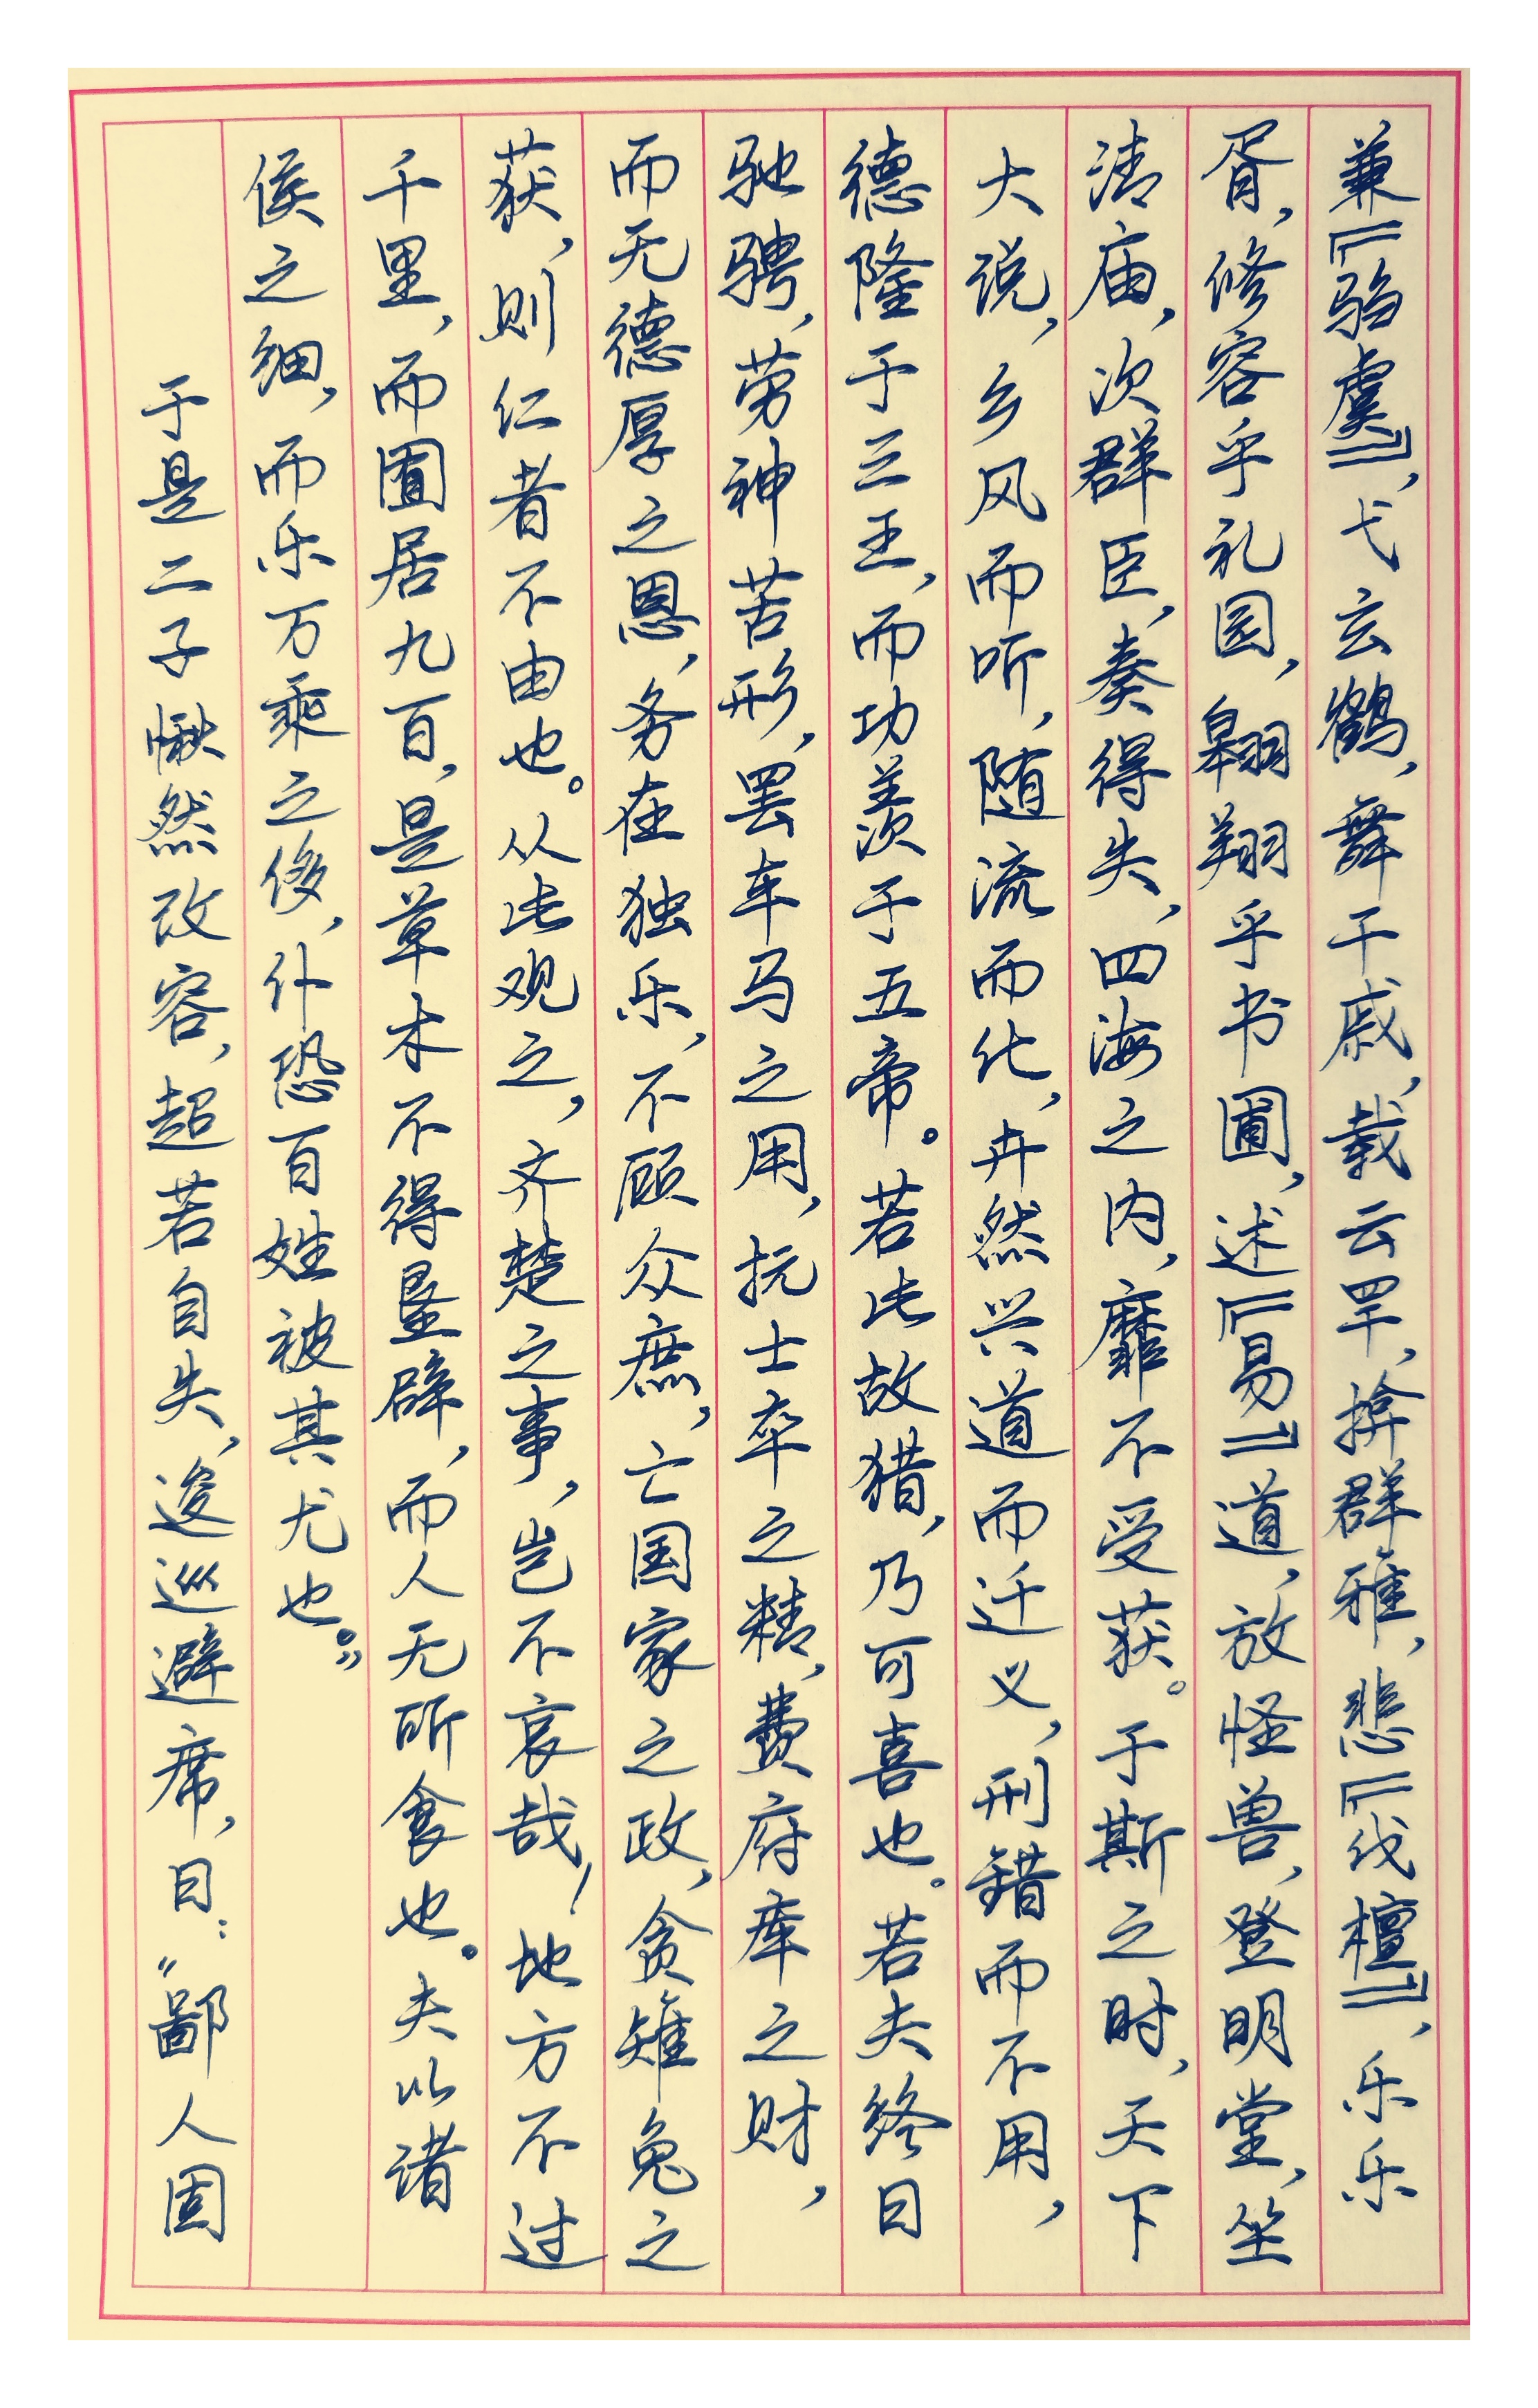 兼『驺虞』，弋玄鹤，舞干戚，载云罕，揜群雅，悲『伐檀』，乐乐
胥，修容乎礼园，翱翔乎书圃，述『易』道，放怪兽，登明堂，坐
清庙，次群臣，奏得失，四海之内，靡不受获。于斯之时，天下
大说，乡风而听，随流而化，卉然兴道而迁义，刑错而不用，
德隆于三王，而功羡于五帝。若此故猎，乃可喜也。若夫终日
驰骋，劳神苦形，罢车马之用，抏士卒之精，费府库之财，
而无德厚之恩，务在独乐，不顾众庶，亡国家之政，贪雉兔之
获，则仁者不由也。从此观之，齐楚之事，岂不哀哉！地方不过
千里，而囿居九百，是草木不得垦辟，而人无所食也。夫以诸
侯之细，而乐万乘之侈，仆恐百姓被其尤也。”
于是二子愀然改容，超若自失，逡巡避席，曰：“鄙人固